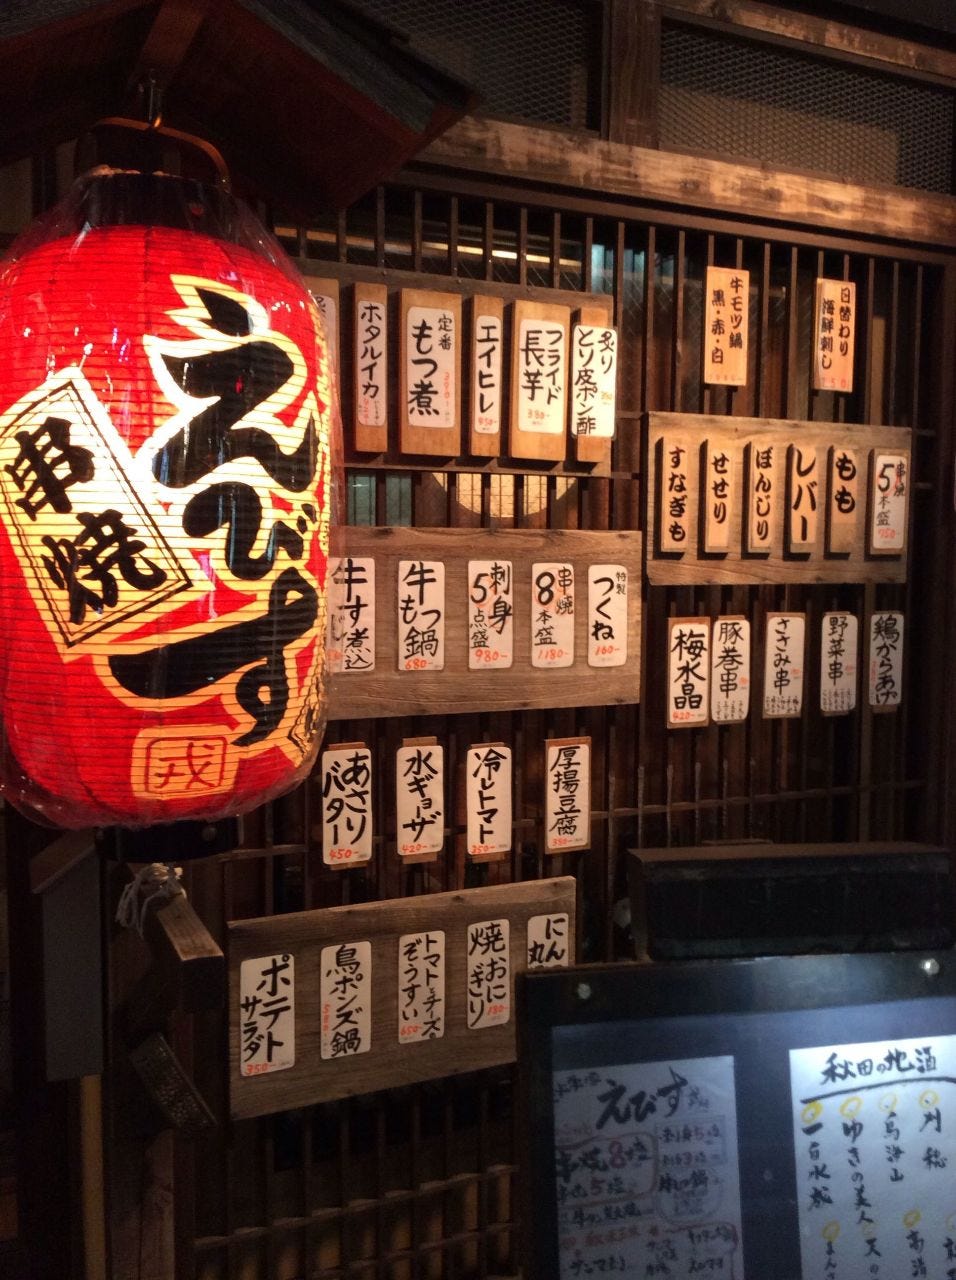 えびす
串焼
戎
ホタルイカ
定番
もつ煮
エイヒレ
450-
フライド
長芋
380-
炙り
とり皮ポン酢
牛モツ鍋
黒・赤・白
日替わり
海鮮刺し
すなぎも
せせり
ぼんじり
レバー
もも
串焼
5本盛
750-
牛すじ煮込
牛もつ鍋
680-
刺身
5点盛
980-
串焼
8本盛
1180-
特製
つくね
160-
梅水晶
420-
豚巻串
ささみ串
野菜串
鶏からあげ
あさり
バター
450-
水ギョーザ
420-
冷しトマト
350-
厚揚豆腐
380-
ポテト
サラダ
350-
鳥ポンズ鍋
580-
トマトとチーズの
ぞうすい
650-
焼おに
ギリ
180-
にん
丸
えびす
串焼8本盛
秋田の地酒
一白水成
ゆきの美人
鳥海山
刈穂